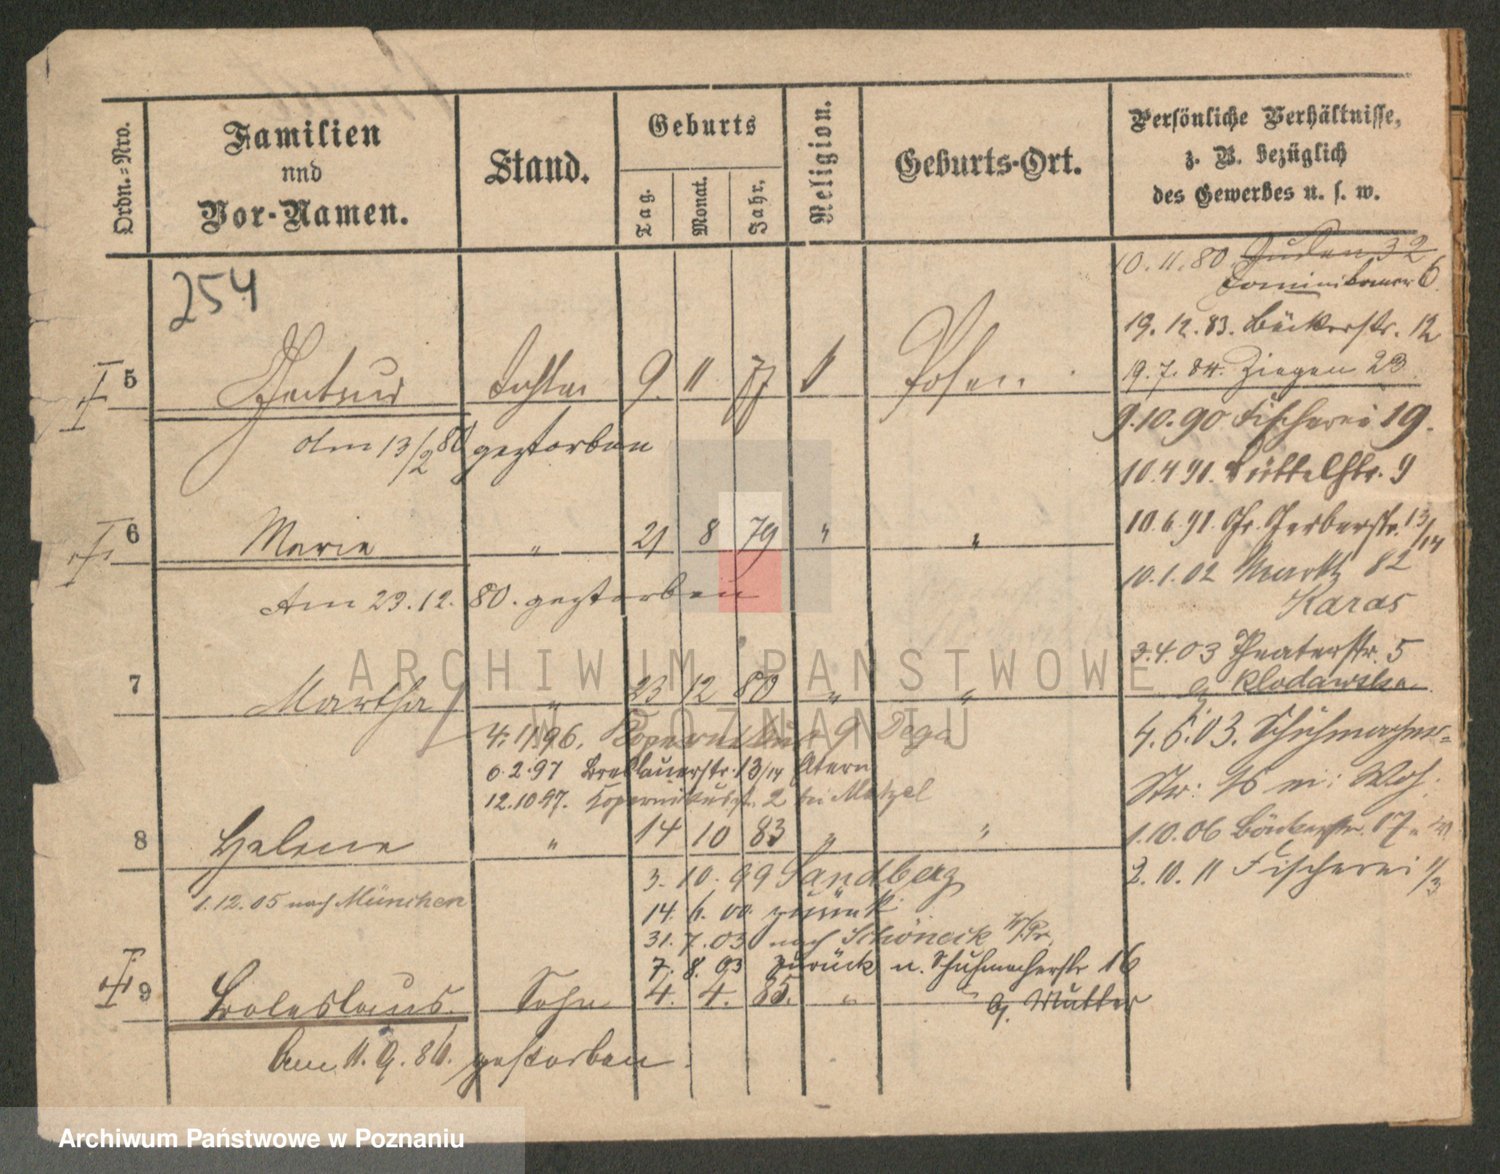 Ordn.-Nro.
Familien
und
Vor-Namen.
Stand.
Geburts
Tag.
Monat.
Jahr.
Religion.
Geburts-Ort.
Persönliche Verhältnisse,
z. B. bezüglich
des Gewerbes u. s. w.
254
10.11.80. Juden 32
Dominikaner 6
19.12.83. Bäckerstr. 12
5 Tochter 9. 11 77 Posen
19.7.84. Ziegen 23
am 13/2 80 gestorben
9.10.90 Fischerei 19.
10.4.91. Büttelstr. 9
6 Marie " 21 8 79 " "
10.6.91. Gr. Gerberstr. 13/14
Am 23.12.80. gestorben
10.1.02 Markt 82
Karas
3.4.03 Theaterstr. 5
Klodawska
7 Martha " 23 12 80 " "
4.11.96. Kopernikus 9 Dega
4.6.03. Schuhmacher-
6.2.97 Breslauerstr. 13/14
Str: 16 m: Woh.
12.10.97. Kopernikusst. 2 bei Matzel
8 Helene " 14 10 83 " "
1.10.06 Bäckerstr. 17
3.10.99 Sandberg
2.10.11 Fischerei 1/3
1.12.05 nach München
14.6.00 zurück
31.7.03 nach Schöneck W/Pr.
7.8.03 zurück n. Schuhmacherstr 16
9 Boleslaus. Sohn 4. 4. 85. " "
Mutter
Am 11.9.86. gestorben.
ARCHIWUM PAŃSTWOWE
W POZNANIU
Archiwum Państwowe w Poznaniu